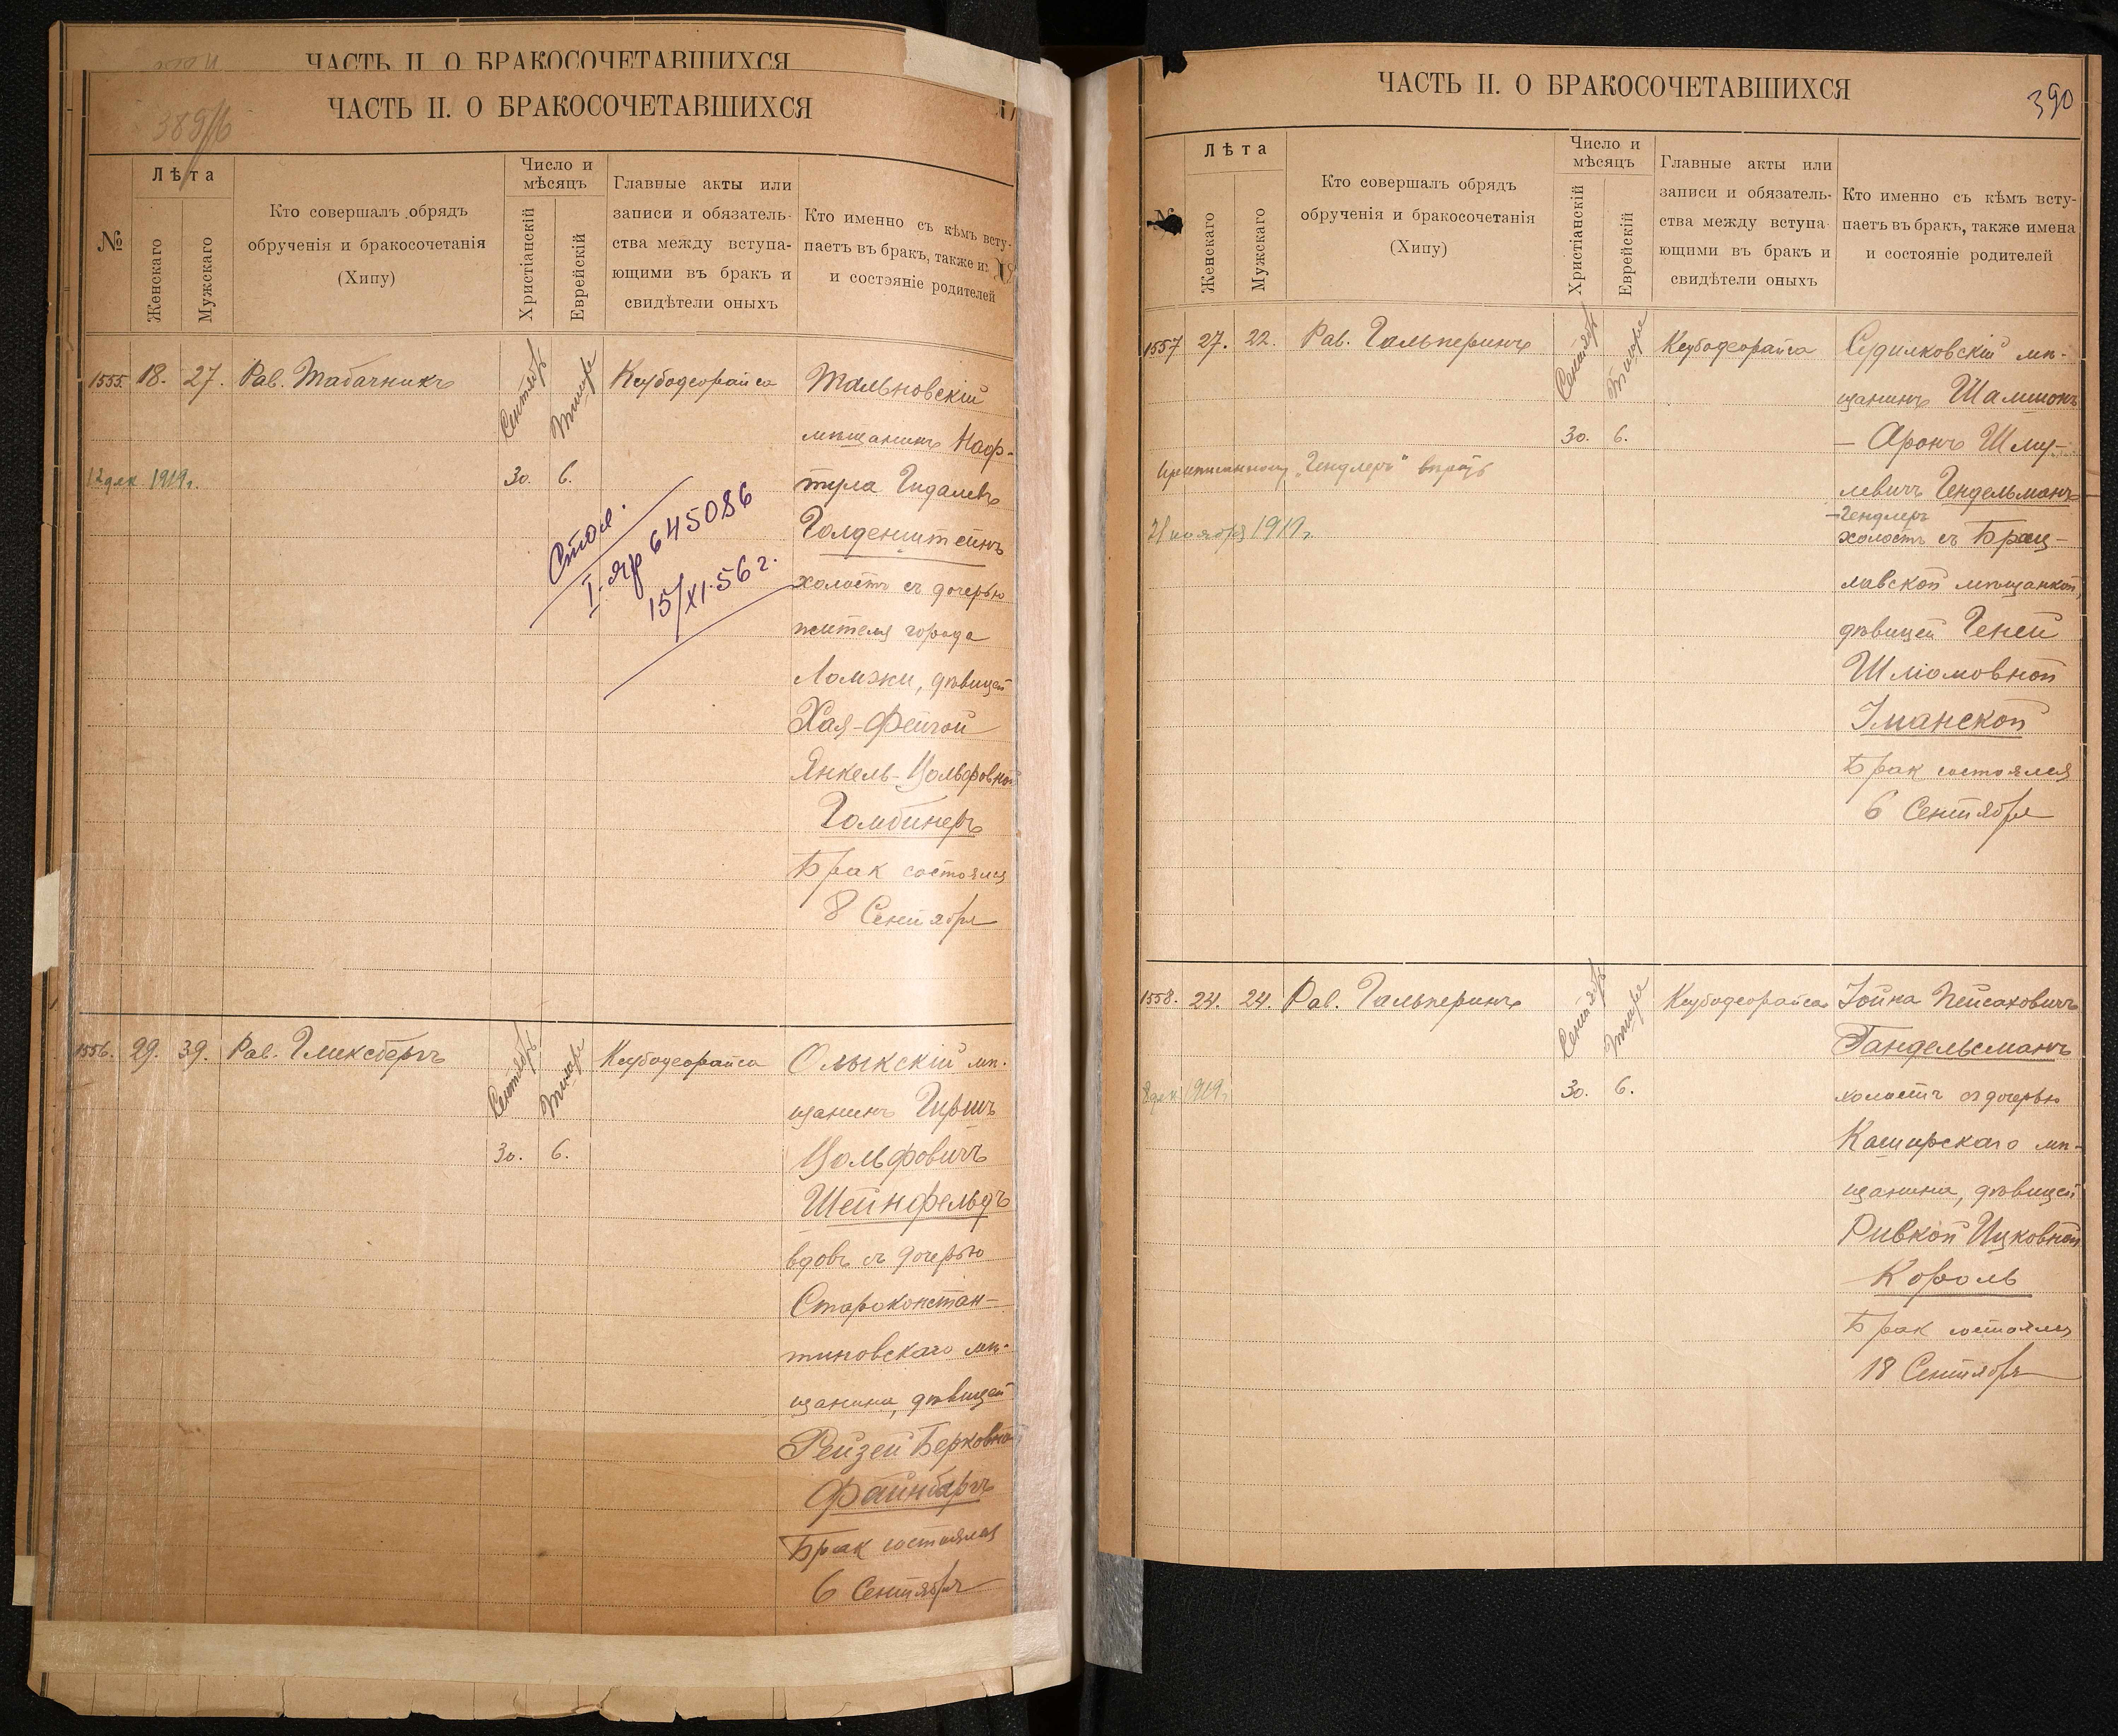 ЧАСТЬ II. О БРАКОСОЧЕТАВШИХСЯ
ЧАСТЬ II. О БРАКОСОЧЕТАВШИХСЯ
389/б
№
Лѣта
Женскаго
Мужскаго
Кто совершалъ обрядъ
обрученія и бракосочетанія
(Хипу)
Число и
мѣсяцъ
Христіанскій
Еврейскій
Главные акты или
записи и обязатель-
ства между вступа-
ющими въ бракъ и
свидѣтели оныхъ
Кто именно съ кѣмъ всту-
паетъ въ бракъ, также и
и состояніе родителей
1555. 18. 27. Рав. Табачникъ
Сентябрь
Тишре
30. 6.
Кусбодеорайса
12 дек 1919 г.
Тальновскій
мѣщанинъ Наф-
тула Гидалевъ
Голденштейнъ
холостъ съ дочерью
жителя города
Ломжи, дѣвицей
Хая-Фейгой
Янкель-Вольфовной
Гомбинеръ
Брак состоялся
8 Сентября
I-яр 645086
15/XI-56 г.
1556. 29. 39. Рав. Гликсбергъ
Сентябрь
Тишре
30. 6.
Кусбодеорайса
Олыкскій мѣ-
щанинъ Гиршъ
Вольфовичъ
Шейнфельдъ
вдовъ съ дочерью
Староконстан-
тиновскаго мѣ-
щанина, дѣвицей
Рейзей Берковной
Файнбергъ
Брак состоялся
6 Сентября
ЧАСТЬ II. О БРАКОСОЧЕТАВШИХСЯ
390
№
Лѣта
Женскаго
Мужскаго
Кто совершалъ обрядъ
обрученія и бракосочетанія
(Хипу)
Число и
мѣсяцъ
Христіанскій
Еврейскій
Главные акты или
записи и обязатель-
ства между вступа-
ющими въ бракъ и
свидѣтели оныхъ
Кто именно съ кѣмъ всту-
паетъ въ бракъ, также имена
и состояніе родителей
1557 27. 22. Рав. Гальперинъ
Сентябрь
Тишре
30. 6.
Кусбодеорайса
"Гендлеръ"
21 ноября 1919 г.
Судилковскій мѣ-
щанинъ Шамшонъ
- Аронъ Шму-
левичъ Гендельманъ
- Гендлеръ
холостъ съ Брац-
лавской мѣщанкой,
дѣвицей Геней
Шліомовной
Уманской
Брак состоялся
6 Сентября
1558. 24. 24. Рав. Гальперинъ
Сентябрь
Тишре
30. 6.
Кусбодеорайса
8 дек 1919 г.
Іойна Пейсаховичъ
Гандельсманъ
холостъ съ дочерью
Каширскаго мѣ-
щанина, дѣвицей
Ривкой Ицковной
Король
Брак состоялся
18 Сентября